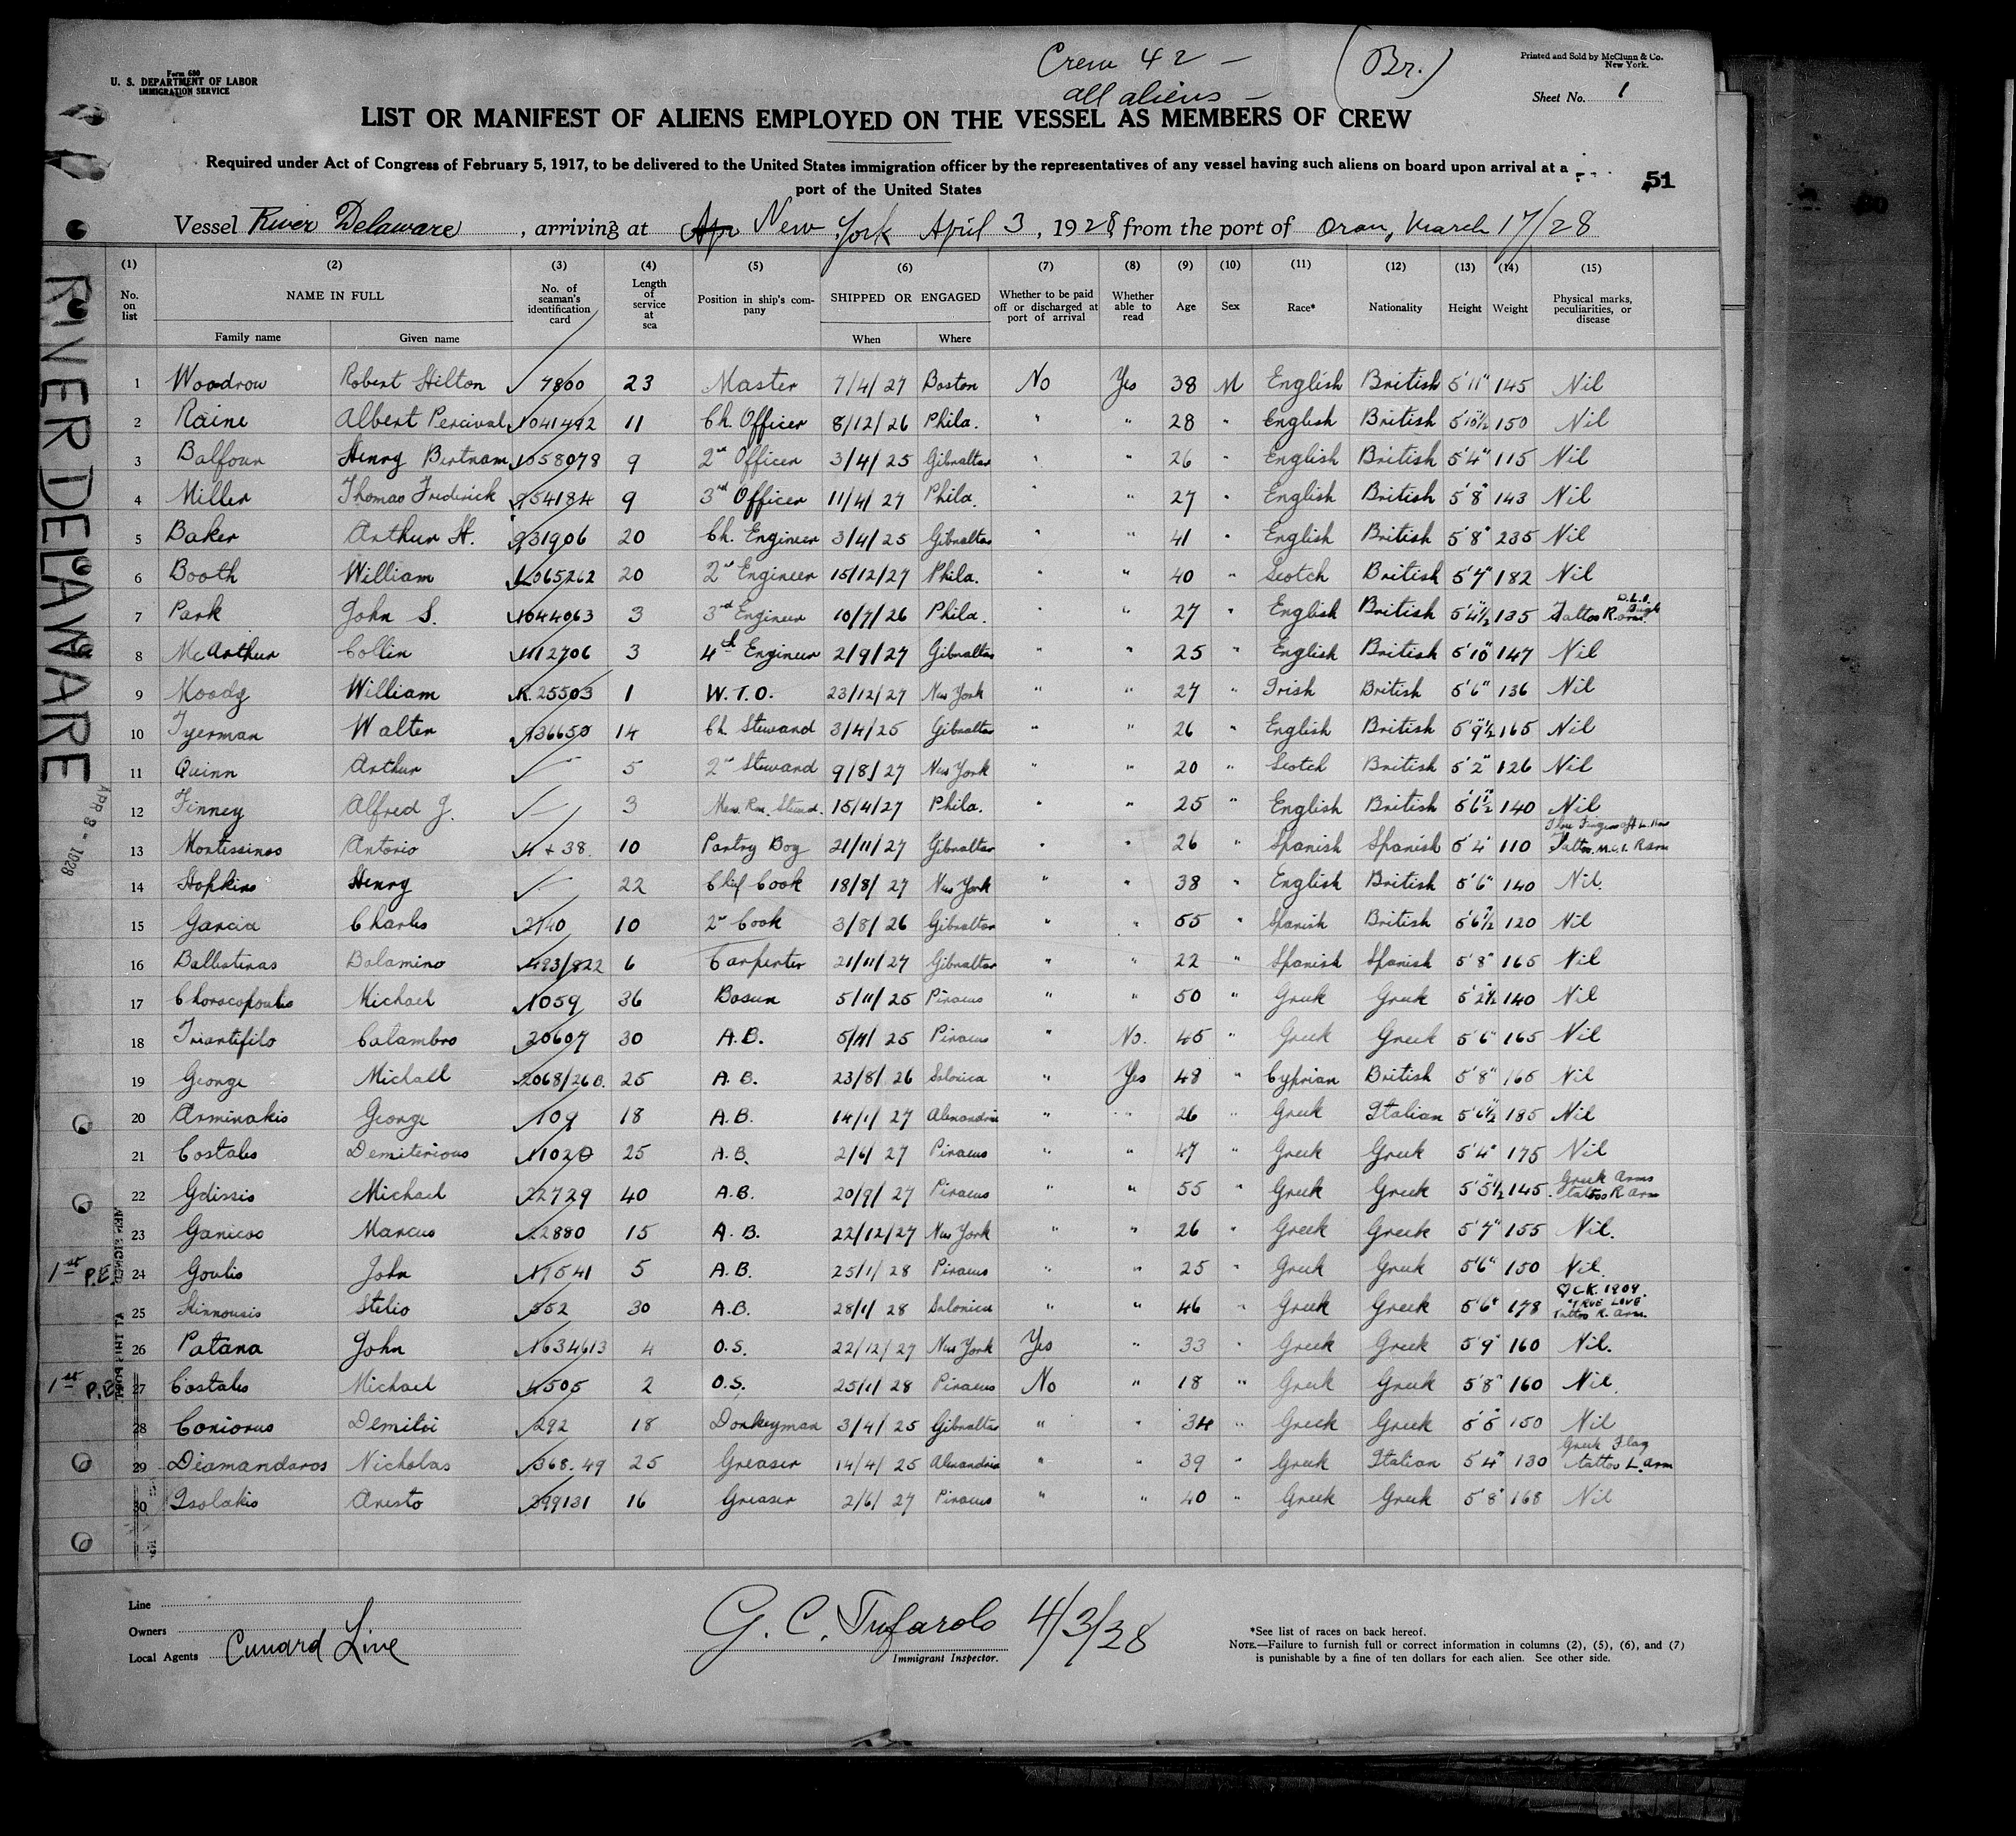 Crew 42 — (Br.)
all aliens —
Form 680
U. S. DEPARTMENT OF LABOR
IMMIGRATION SERVICE
Printed and Sold by McClunn & Co.
New York.
Sheet No. 1
LIST OR MANIFEST OF ALIENS EMPLOYED ON THE VESSEL AS MEMBERS OF CREW
Required under Act of Congress of February 5, 1917, to be delivered to the United States immigration officer by the representatives of any vessel having such aliens on board upon arrival at a
port of the United States
51
Vessel River Delaware, arriving at New York April 3, 1928, from the port of Oran, March 17/28
RIVER DELAWARE
APR 3 - 1928
(1) (2) (3) (4) (5) (6) (7) (8) (9) (10) (11) (12) (13) (14) (15)
No. on list NAME IN FULL Family name Given name No. of seaman's identification card Length of service at sea Position in ship's company SHIPPED OR ENGAGED When Where Whether to be paid off or discharged at port of arrival Whether able to read Age Sex Race* Nationality Height Weight Physical marks, peculiarities, or disease
1 Woodrow Robert Hilton 7800 23 Master 7/4/27 Boston No Yes 38 M English British 5'11" 145 Nil
2 Raine Albert Percival 1041492 11 Ch. Officer 8/12/26 Phila. " " 28 " English British 5'10½ 150 Nil
3 Balfour Henry Bertram 1058078 9 2nd Officer 3/4/25 Gibraltar " " 26 " English British 5'4" 115 Nil
4 Miller Thomas Frederick 954184 9 3rd Officer 11/4/27 Phila. " " 27 " English British 5'8" 143 Nil
5 Baker Arthur H. 931906 20 Ch. Engineer 3/4/25 Gibraltar " " 41 " English British 5'8" 235 Nil
6 Booth William 1065262 20 2nd Engineer 15/12/27 Phila. " " 40 " Scotch British 5'7" 182 Nil
7 Park John S. 1044063 3 3rd Engineer 10/7/26 Phila. " " 27 " English British 5'4½ 135 Tattoo R. arm
8 McArthur Collin 1112706 3 4th Engineer 2/9/27 Gibraltar " " 25 " English British 5'10" 147 Nil
9 Moody William R.25503 1 W.T.O. 23/12/27 New York " " 27 " Irish British 5'6" 136 Nil
10 Tyerman Walter 936650 14 Ch. Steward 3/4/25 Gibraltar " " 26 " English British 5'9½ 165 Nil
11 Quinn Arthur 5 2nd Steward 9/8/27 New York " " 20 " Scotch British 5'2" 126 Nil
12 Finney Alfred J. 3 Mess Rm. Stewd. 15/4/27 Phila. " " 25 " English British 5'6½ 140 Nil
13 Montissinos Antonio 4+38 10 Pantry Boy 21/11/27 Gibraltar " " 26 " Spanish Spanish 5'4" 110 Tattoo. M.C.I. R arm
14 Hopkins Henry 22 Chief Cook 18/8/27 New York " " 38 " English British 5'6" 140 Nil.
15 Garcia Charles 2740 10 2nd Cook 3/8/26 Gibraltar " " 55 " Spanish British 5'6½ 120 Nil
16 Ballestinas Balamino 493/822 6 Carpenter 21/11/27 Gibraltar " " 22 " Spanish Spanish 5'8" 165 Nil
17 Choracopoulis Michael 1059 36 Bosun 5/11/25 Piraeus " " 50 " Greek Greek 5'2½ 140 Nil
18 Triantifilo Calambro 20607 30 A.B. 5/11/25 Piraeus " No. 45 " Greek Greek 5'6" 165 Nil
19 George Michall 2068/26B. 25 A.B. 23/8/26 Salonica " Yes 48 " Cyprian British 5'8" 165 Nil
20 Arminakis George 109 18 A.B. 14/1/27 Alexandria " " 26 " Greek Italian 5'6½ 185 Nil
21 Costalis Demiterious 11020 25 A.B. 2/6/27 Piraeus " " 47 " Greek Greek 5'4" 175 Nil
22 Gdissis Michael 22729 40 A.B. 20/9/27 Piraeus " " 55 " Greek Greek 5'5½ 145 Greek Arms tattoo R arm
23 Ganicos Marcus 22880 15 A.B. 22/12/27 New York " " 26 " Greek Greek 5'7" 155 Nil.
1st P.E. 24 Goulis John 17541 5 A.B. 25/1/28 Piraeus " " 25 " Greek Greek 5'6" 150 Nil.
25 Skinnousis Stelio 552 30 A.B. 28/1/28 Salonica " " 46 " Greek Greek 5'6" 178 ♡ C.K. 1909. "TRUE LOVE" Tattoo R. arm.
26 Patana John 1634613 4 O.S. 22/12/27 New York Yes " 33 " Greek Greek 5'9" 160 Nil.
1st P.E. 27 Costalis Michael 4505 2 O.S. 25/1/28 Piraeus No " 18 " Greek Greek 5'8" 160 Nil.
28 Coniorus Demitri 292 18 Donkeyman 3/4/25 Gibraltar " " 34 " Greek Greek 5'5" 150 Nil
29 Diamandaros Nicholas 1368.49 25 Greaser 14/4/25 Alexandria " " 39 " Greek Italian 5'4" 130 Greek Flag tattoo L. arm
30 Isolakis Aresto 299131 16 Greaser 2/6/27 Piraeus " " 40 " Greek Greek 5'8" 168 Nil
Line
Owners
Local Agents Cunard Line
G. C. Tufarolo 4/3/28
Immigrant Inspector.
*See list of races on back hereof.
NOTE.—Failure to furnish full or correct information in columns (2), (5), (6), and (7)
is punishable by a fine of ten dollars for each alien. See other side.